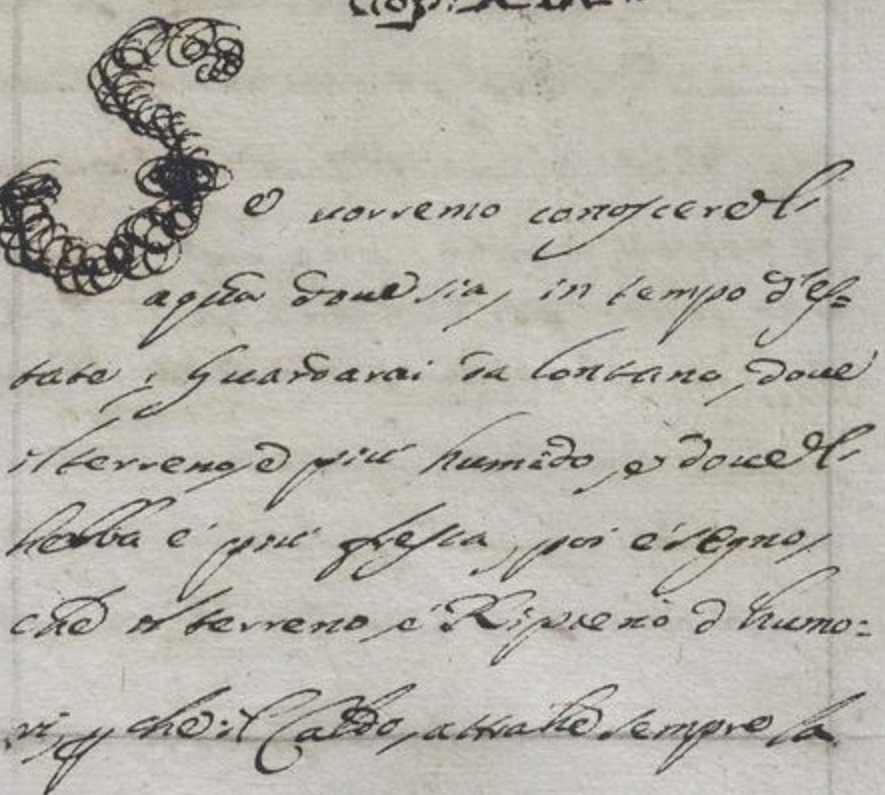 Cap. XIX
Se uorremo conoscere l'
aqua doue sia, in tempo d'es=
tate, Guardarai da lontano, doue
il terreno è più humido, e doue l'
herba é più fresca, poi é segno,
che il terreno, é Ripieno d humo=
ri, che il Caldo, attrahe sempre la